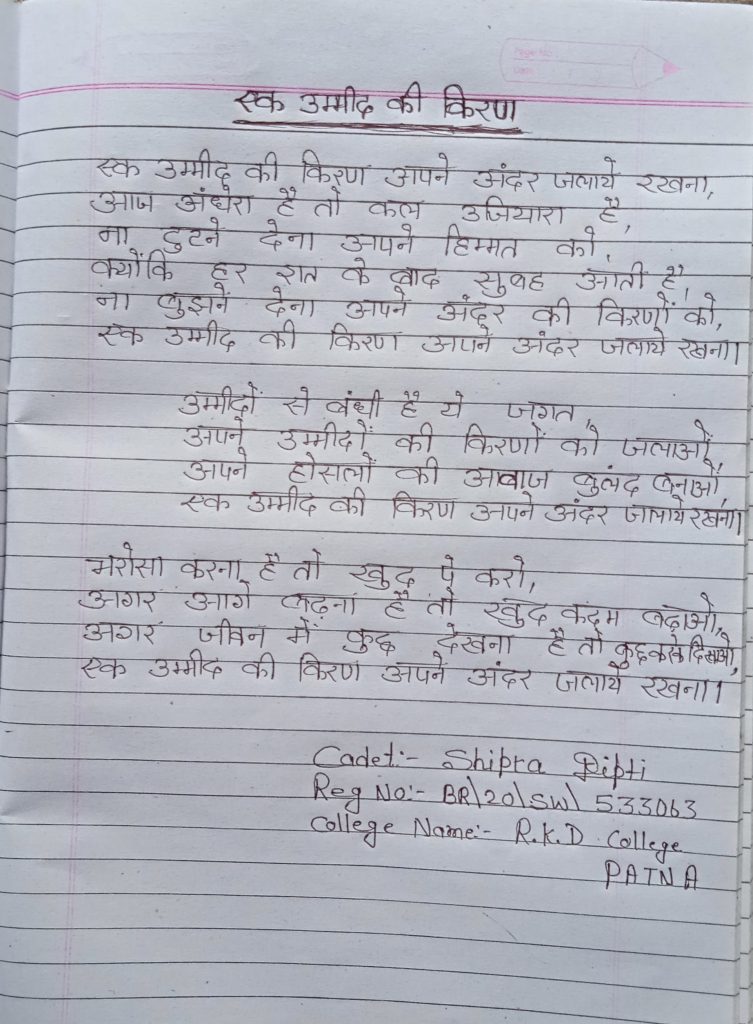 Page No.
Date
एक उम्मीद की किरण
एक उम्मीद की किरण अपने अंदर जलाये रखना,
आज अंधेरा है तो कल उजियारा है,
ना टुटने देना अपने हिम्मत को,
क्योंकि हर रात के बाद सुबह आती है,
ना बुझने देना अपने अंदर की किरणों को,
एक उम्मीद की किरण अपने अंदर जलाये रखना।
उम्मीदों से बंधी है ये जगत,
अपने उम्मीदों की किरणों को जलाओं,
अपने होसलों की आवाज बुलंद बनाओ,
एक उम्मीद की किरण अपने अंदर जालाये रखना।
भरोसा करना है तो खुद पे करो,
अगर आगे बढ़ना है तो खुद कदम बढ़ाओ,
अगर जीवन में कुछ देखना है तो कुछ करके दिखाओ,
एक उम्मीद की किरण अपने अंदर जलाये रखना।
Cadet:- Shipra Dipti
Reg No:- BR\20\SW\ 533063
College Name:- R.K.D. College
PATNA